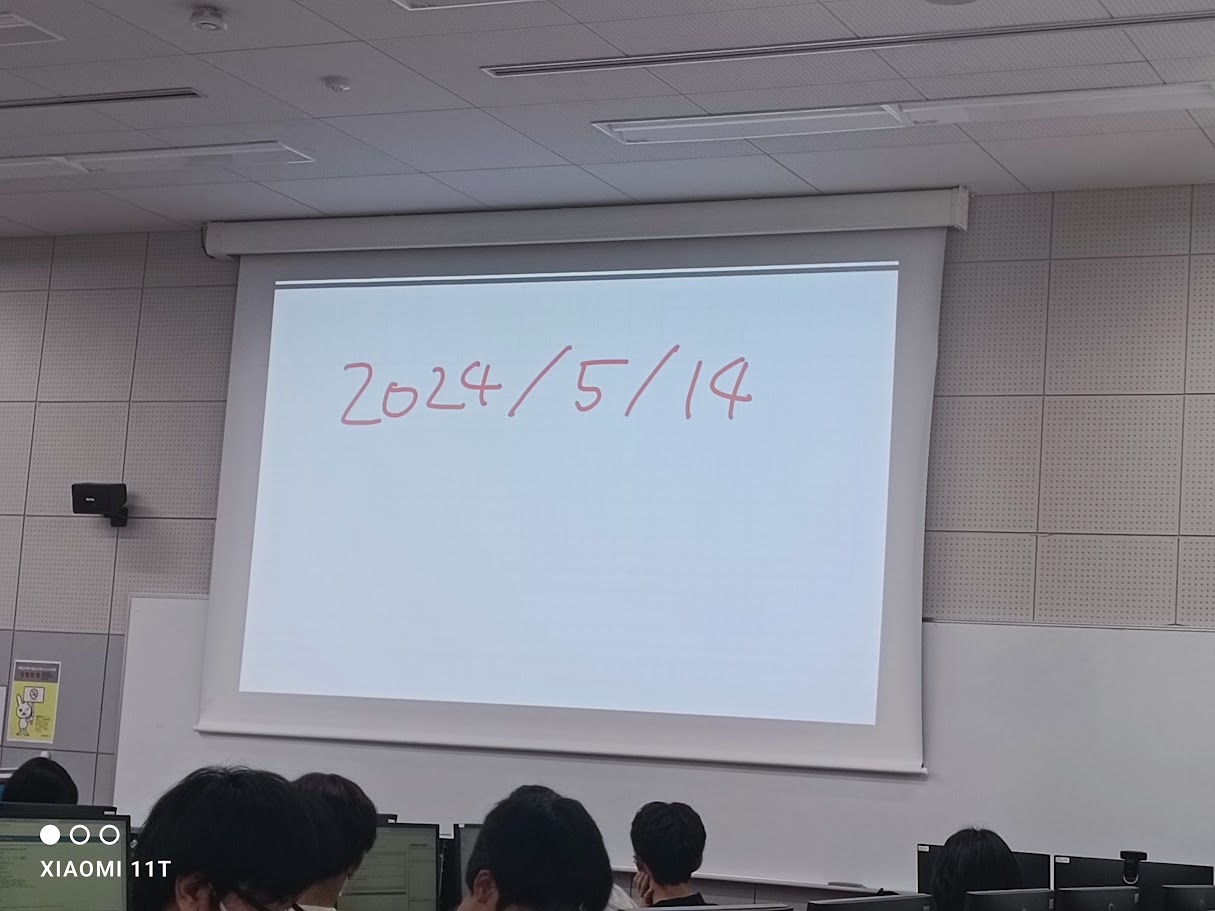 2024/5/14
XIAOMI 11T